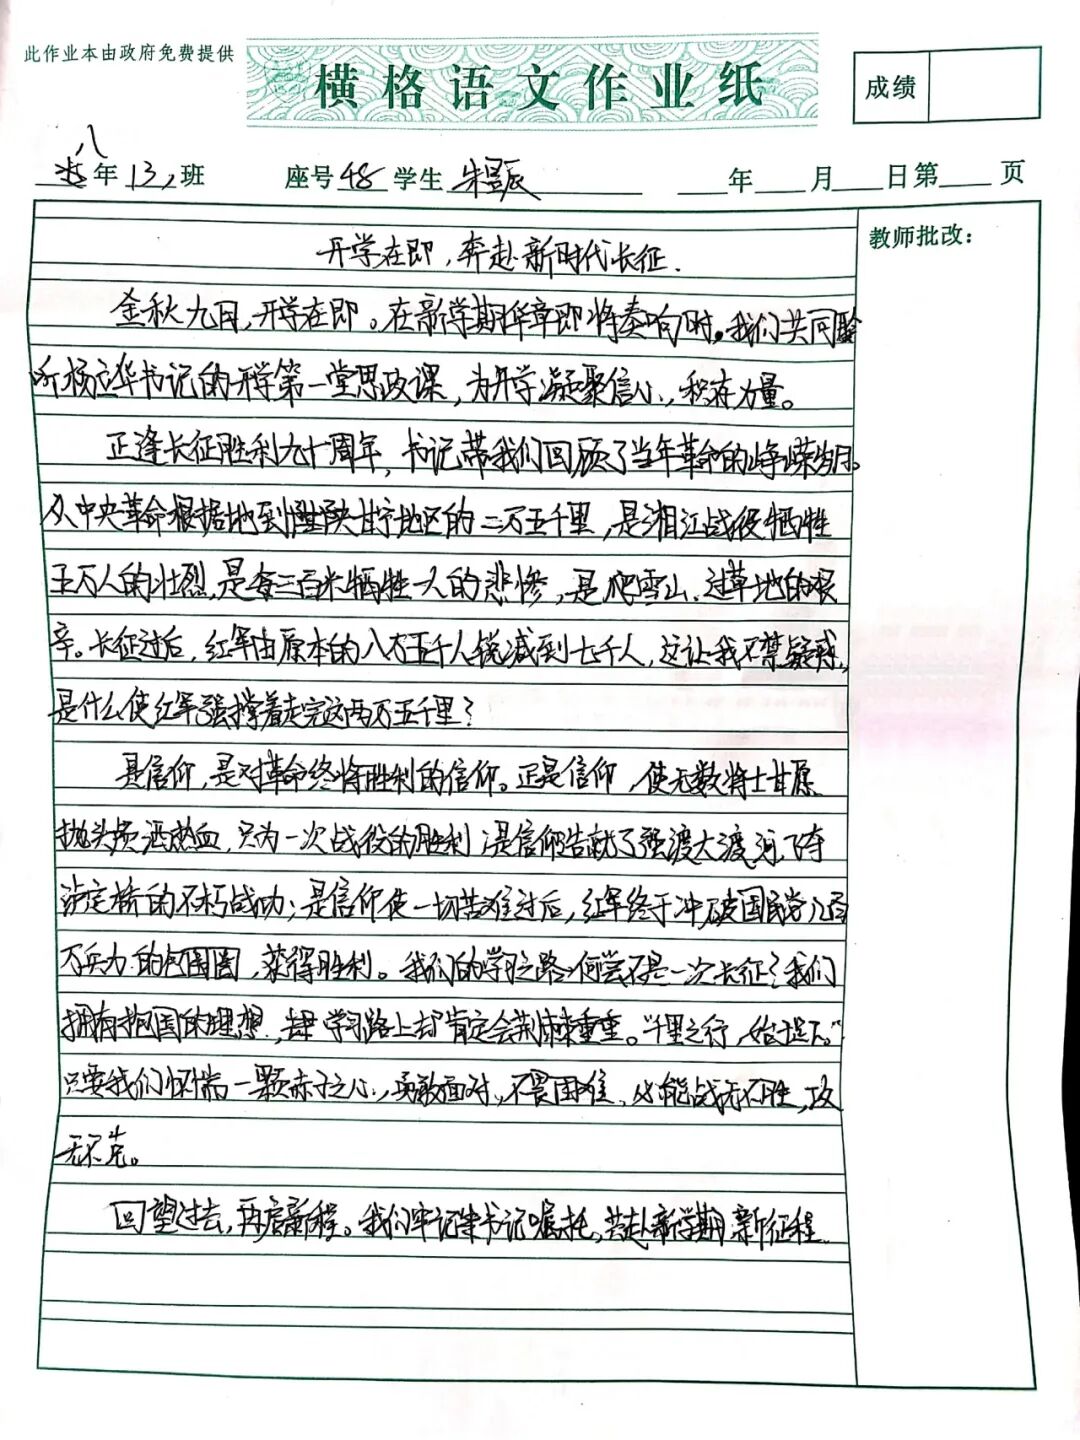 此作业本由政府免费提供
横格语文作业纸
成绩
八年13班 座号48学生 朱 年 月 日第 页
教师批改：
开学在即，奔赴新时代长征.
金秋九月，开学在即。在新学期华章即将奏响时，我们共同聆
听杨立华书记的开学第一堂思政课，为开学凝聚信心，积在力量。
正逢长征胜利九十周年，书记带我们回顾了当年革命的峥嵘岁月。
从中央革命根据地到陕甘宁地区的二万五千里，是湘江战役牺牲
五万人的壮烈，是每三百米牺牲一人的悲惨，是爬雪山、过草地的艰
辛。长征过后，红军由原本的八万五千人锐减到七千人，这让我不禁疑惑，
是什么使红军强撑着走完这两万五千里？
是信仰，是对革命终将胜利的信仰。正是信仰，使无数将士甘愿
抛头颅洒热血，只为一次战役的胜利；是信仰造就了强渡大渡河、飞夺
泸定桥的不朽战功；是信仰使一切苦难过后，红军终于冲破国民党几百
万兵力的包围圈，获得胜利。我们的学习之路何尝不是一次长征？我们
拥有报国的理想，学习路上却肯定会荆棘重重。“千里之行，始于足下。”
只要我们怀揣一颗赤子之心，勇敢面对，不畏困难，必能战无不胜，攻
无不克。
回望过去，再启新程。我们牢记朱书记嘱托，共赴新学期新征程.